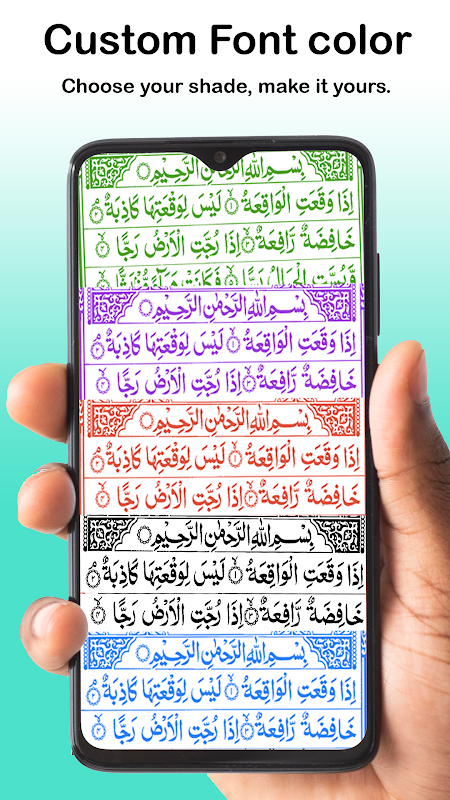 Custom Font color
Choose your shade, make it yours.
بِسْمِ اللّٰهِ الرَّحْمٰنِ الرَّحِيْمِ
اِذَا وَقَعَتِ الْوَاقِعَةُ ۙ﴿۱﴾ لَيْسَ لِوَقْعَتِهَا كَاذِبَةٌ ۘ﴿۲﴾
خَافِضَةٌ رَّافِعَةٌ ۙ﴿۳﴾ اِذَا رُجَّتِ الْاَرْضُ رَجًّا ۙ﴿۴﴾
بِسْمِ اللّٰهِ الرَّحْمٰنِ الرَّحِيْمِ
اِذَا وَقَعَتِ الْوَاقِعَةُ ۙ﴿۱﴾ لَيْسَ لِوَقْعَتِهَا كَاذِبَةٌ ۘ﴿۲﴾
خَافِضَةٌ رَّافِعَةٌ ۙ﴿۳﴾ اِذَا رُجَّتِ الْاَرْضُ رَجًّا ۙ﴿۴﴾
بِسْمِ اللّٰهِ الرَّحْمٰنِ الرَّحِيْمِ
اِذَا وَقَعَتِ الْوَاقِعَةُ ۙ﴿۱﴾ لَيْسَ لِوَقْعَتِهَا كَاذِبَةٌ ۘ﴿۲﴾
خَافِضَةٌ رَّافِعَةٌ ۙ﴿۳﴾ اِذَا رُجَّتِ الْاَرْضُ رَجًّا ۙ﴿۴﴾
بِسْمِ اللّٰهِ الرَّحْمٰنِ الرَّحِيْمِ
اِذَا وَقَعَتِ الْوَاقِعَةُ ۙ﴿۱﴾ لَيْسَ لِوَقْعَتِهَا كَاذِبَةٌ ۘ﴿۲﴾
خَافِضَةٌ رَّافِعَةٌ ۙ﴿۳﴾ اِذَا رُجَّتِ الْاَرْضُ رَجًّا ۙ﴿۴﴾
بِسْمِ اللّٰهِ الرَّحْمٰنِ الرَّحِيْمِ
اِذَا وَقَعَتِ الْوَاقِعَةُ ۙ﴿۱﴾ لَيْسَ لِوَقْعَتِهَا كَاذِبَةٌ ۘ﴿۲﴾
خَافِضَةٌ رَّافِعَةٌ ۙ﴿۳﴾ اِذَا رُجَّتِ الْاَرْضُ رَجًّا ۙ﴿۴﴾